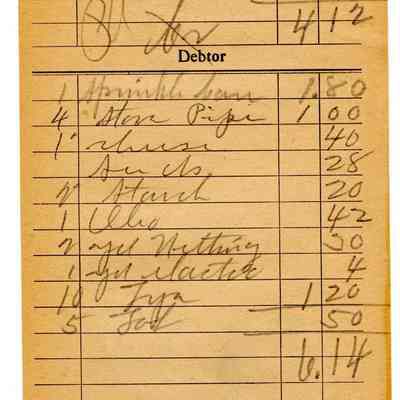 4 12
Debtor
1 Sprinkle Can 1.80
4 Stove Pipe 1 00
1 cheese 40
28
2 Starch 20
1 Oleo 42
2 yd Netting 30
1 yd elastic 4
10 1 20
5 50
6.14